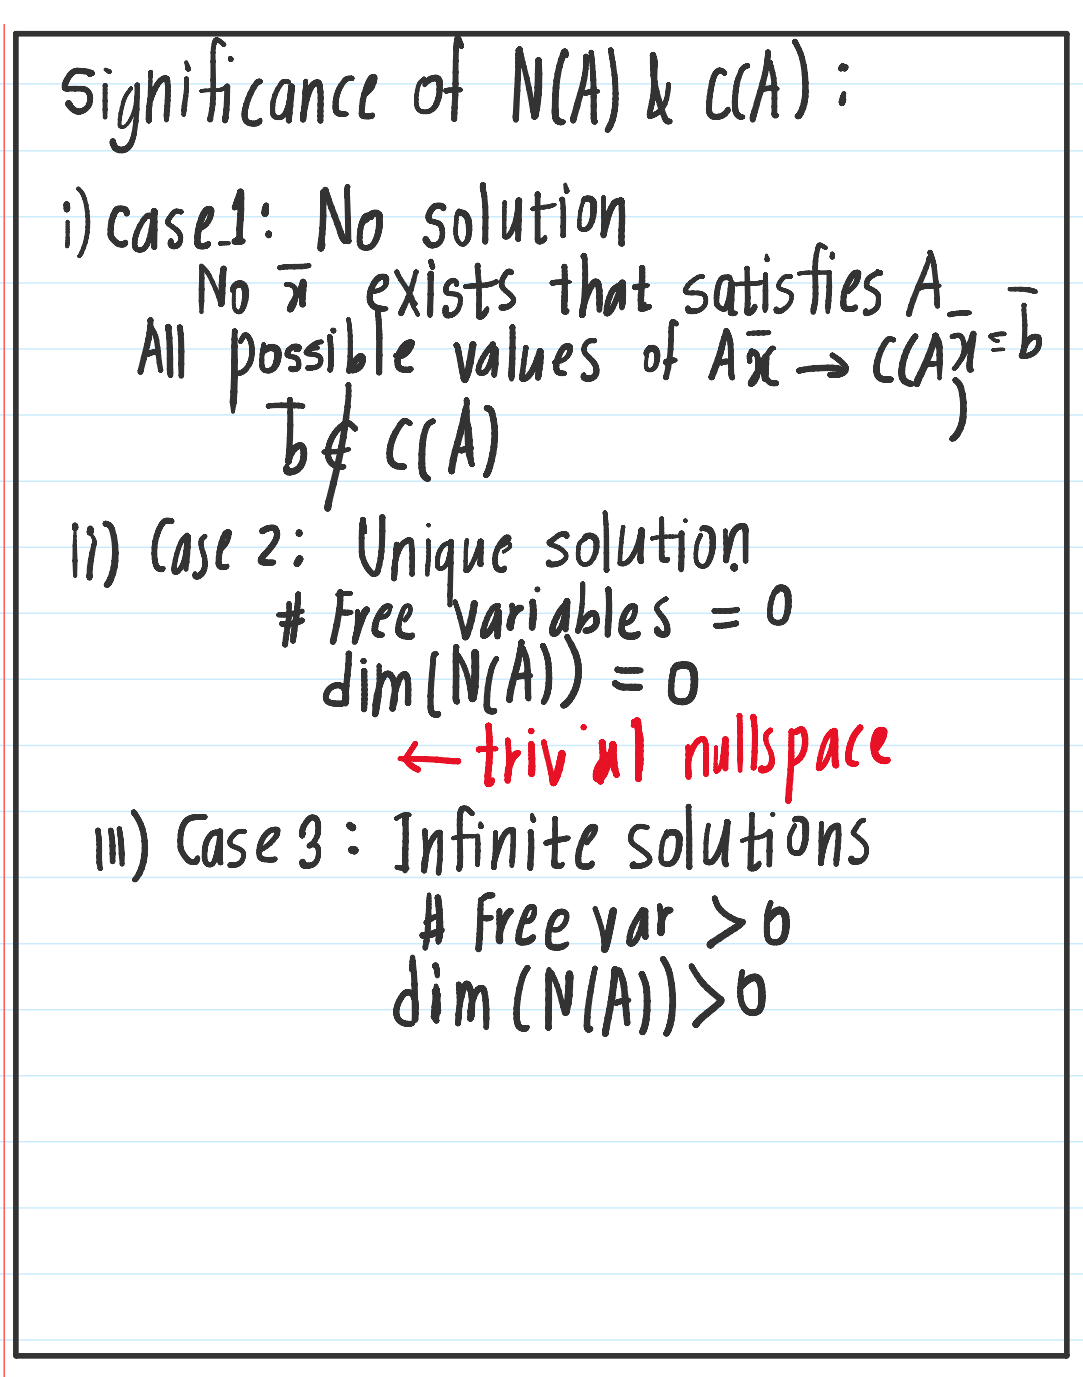 Significance of N(A) & C(A) :
i) case 1: No solution
No x̄ exists that satisfies A x̄ = b̄
All possible values of Ax̄ → C(A)
b̄ ∉ C(A)
ii) Case 2: Unique solution
# Free variables = 0
dim(N(A)) = 0
← trivial nullspace
iii) Case 3 : Infinite solutions
# Free var > 0
dim (N(A)) > 0